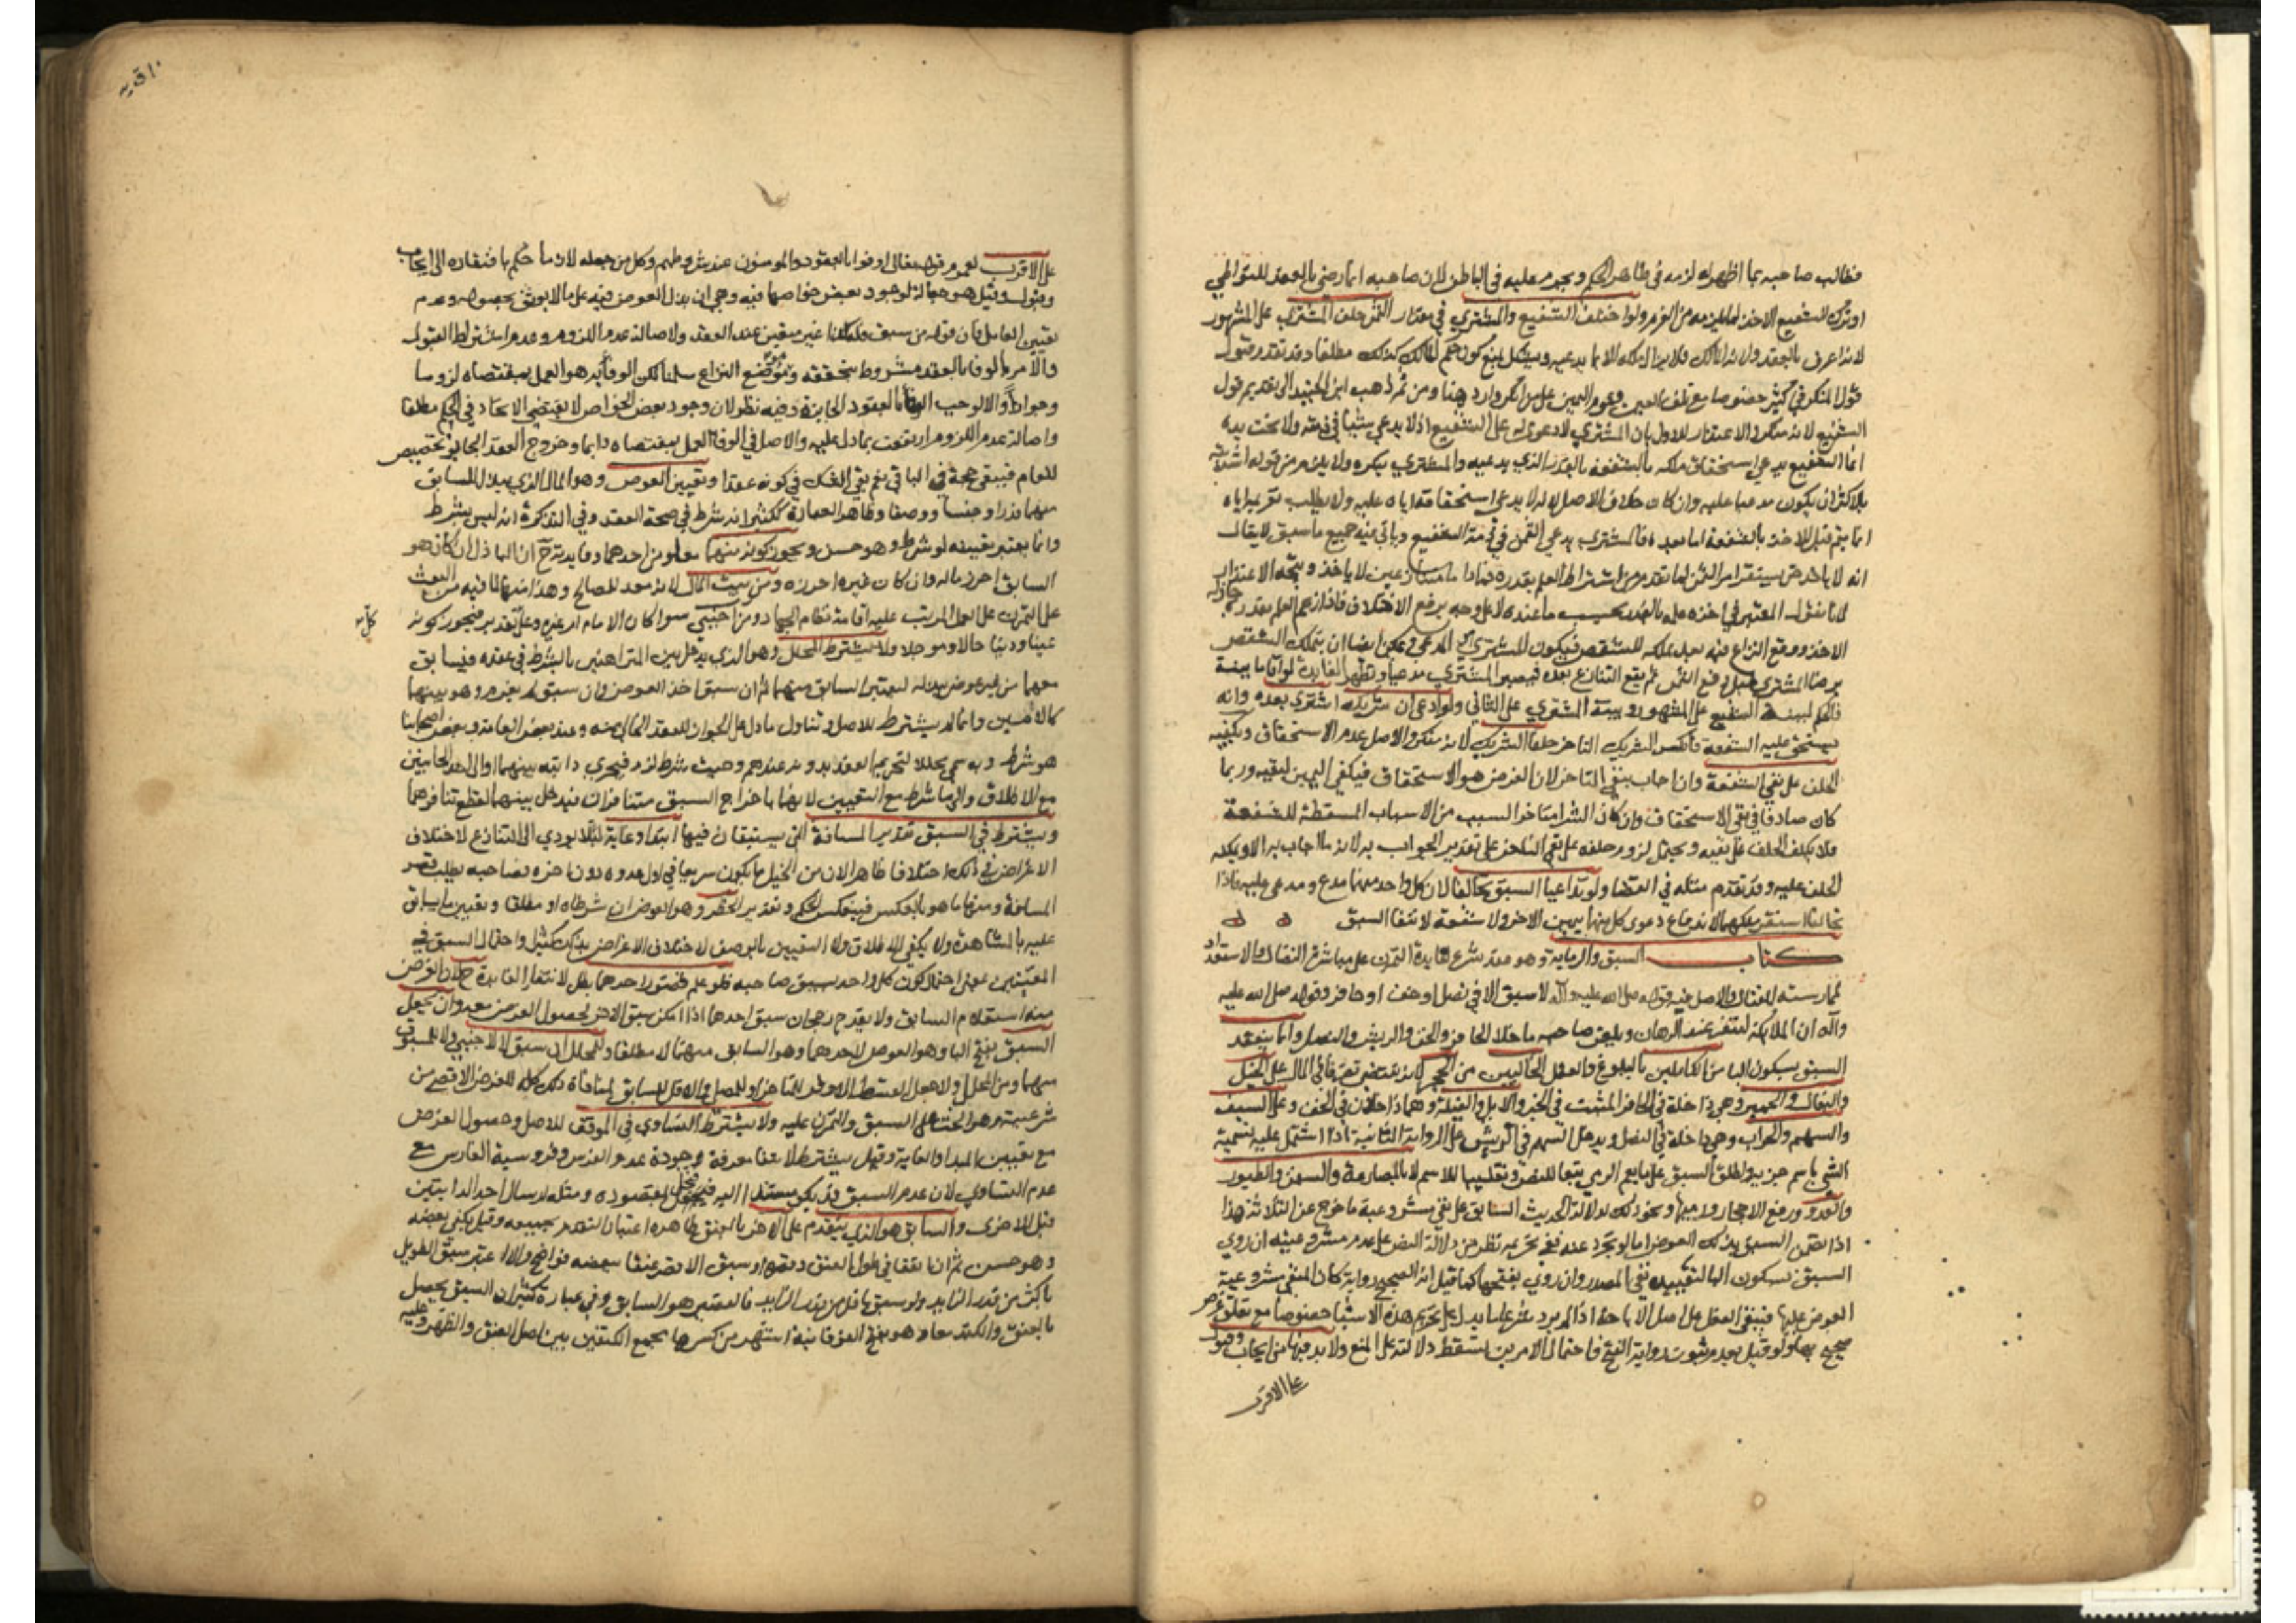 فطالب صاحبه بما اظهراه لزمه في ظاهر الحكم ويحرم عليه في الباطن لان صاحبه انما رضي بالعقد للتواطي
او ترك الشفيع الاخذ لما يلزمه من الغرم ولو اختلف الشفيع والمشتري في مقدار الثمن حلف المشتري على المشهور
لانه اعرف بالعقد ولانه المالك فلا يزال ملكه الا بما يدعيه ويشكل بمنع كون حكم المالك كذلك مطلقا وقد تقدم قبول
قول المنكر في كثير خصوصا مع تلف العين وعموم اليمين على من انكر وارد هنا ومن ثم ذهب ابن الجنيد الى تقديم قول
الشفيع لانه منكر والاعتذار للاول بان المشتري لا دعوى له على الشفيع اذ لا يدعي شيئا في ذمته ولا تحت يده
انما الشفيع يدعي استحقاق ملكه بالشفعة بالقدر الذي يدعيه والمشتري ينكره ولا يلزم من قوله اشتريته
بالاكثر ان يكون مدعيا عليه وان كان خلاف الاصل لانه لا يدعي استحقاقه اياه عليه ولا يطلب تغريمه اياه
انما يتم قبل الاخذ بالشفعة اما بعده فالمشتري يدعي الثمن في ذمة الشفيع وياتي فيه جميع ما سبق لا يقال
انه لا ياخذ حتى يستقر امر الثمن لما تقدم من اشتراط العلم بقدره فما داما متنازعين لا ياخذ ويتجه الاعتذار
لانا نقول المعتبر في اخذه علمه بالقدر بحسب ما عنده لا على وجه يرفع الاختلاف فاذا زعم العلم بقدره جاز له
الاخذ ووقع النزاع فيه بعد تملكه للشقص فيكون المشتري هو المدعي ويمكن ايضا ان يتملك الشقص
برضا المشتري قبل دفع الثمن ثم يقع التنازع بعده فيصير المشتري مدعيا وتظهر الفايدة لو اقاما بينة
فالحكم لبينة الشفيع على المشهور وبينة المشتري على الثاني ولو ادعى ان شريكه اشترى بعده وانه
يستحق عليه الشفعة فانكر الشريك التاخر حلف الشريك لانه منكر والاصل عدم الاستحقاق ويكفيه
الحلف على نفي الشفعة وان اجاب بنفي التاخر لان الغرض هو الاستحقاق فيكفي اليمين لنفيه وربما
كان صادقا في نفي الاستحقاق وان كان الشرا متاخرا لسبب من الاسباب المسقطة للشفعة
فلا يكلف الحلف على نفيه ويحتمل لزوم حلفه على نفي التاخر على تقدير الجواب به لانه ما اجاب به الا ويمكنه
الحلف عليه وقد تقدم مثله في القضا ولو تداعيا السبق تحالفا لان كل واحد منهما مدع ومدعى عليه فاذا
تحالفا استقر ملكهما لاندفاع دعوى كل منهما بيمين الاخر ولا شفعة لانتفا السبق
كتاب السبق والرماية وهو عقد شرع لفايدة التمرن على مباشرة النضال والاستعداد
لممارسته للقتال والاصل فيه قوله صلى الله عليه وآله لا سبق الا في نصل او خف او حافر وقوله صلى الله عليه
وآله ان الملائكة لتنفر عند الرهان ويلعن صاحبه ما خلا الحافر والخف والريش والنصل وانما ينعقد
السبق بسكون البا من الكاملين بالبلوغ والعقل الخاليين من الحجر لانه يقتضي تصرفا في المال على الخيل
والبغال والحمير وهي داخلة في الحافر المثبت في الخبر والابل والفيلة وهما داخلان في الخف وعلى السيف
والسهم والحراب وهي داخلة في النصل ويدخل السهم في الريش على الرواية الثانية اذا اشتمل عليه تسمية
الشي باسم جزيه واطلق السبق على ما يعم الرمي تبعا للنص وتغليبا للاسم لا بالمصارعة والسفن والطيور
والعدو ورفع الاحجار ورميها ونحو ذلك لدلالة الحديث السابق على نفي مشروعية ما خرج عن الثلاثة هذا
اذا تضمن السبق بذلك العوض اما لو تجرد عنه ففي تحريمه نظر من دلالة النص على عدم مشروعيته ان روي
السبق بسكون البا ليفيد نفي المصدر وان روي بفتحها كما قيل انه الصحيح رواية كان المنفي مشروعية
العوض عليها فيبقى الفعل على اصل الاباحة اذ لم يرد شرعا ما يدل على تحريم هذه الاشيا خصوصا مع تعلق غرض
صحيح بها ولو قيل بعدم ثبوت رواية الفتح فاحتمال الامرين يسقط دلالته على المنع ولا بد فيها من ايجاب وقبول
على الاقرب
على الاقرب لعموم قوله تعالى اوفوا بالعقود والمومنون عند شروطهم وكل من جعله لازما حكم بافتقاره الى ايجاب
وقبول وقيل هو جعالة لوجود بعض خواصها فيه وهي ان بذل العوض فيه على ما لا يوثق بحصوله وعدم
تعيين العامل فان قوله من سبق فله كذا غير متعين عند العقد ولاصالة عدم اللزوم وعدم اشتراط القبول
والامر بالوفا بالعقد مشروط بتحققه وهو موضع النزاع سلمنا لكن الوفا به هو العمل بمقتضاه لزوما
وجوازا والا لوجب الوفا بالعقود الجايزة وفيه نظر لان وجود بعض الخواص لا يقتضي الاتحاد في الحكم مطلقا
واصالة عدم اللزوم ارتفعت بما دل عليه والاصل في الوفا العمل بمقتضاه دايما وخروج العقد الجايز تخصيص
للعام فيبقى حجة في الباقي نعم يبقى الشك في كونه عقدا وتعيين العوض وهو المال الذي يبذل للسابق
منهما قدرا وجنسا ووصفا وظاهر العبارة ككثير انه شرط في صحة العقد وفي التذكرة انه ليس بشرط
وانما يعتبر تعيينه لو شرط وهو حسن ويجوز كونه منهما معا ومن احدهما وفايدته ح ان الباذل ان كان هو
السابق احرز ماله وان كان غيره احرزه ومن بيت المال لانه معد للمصالح وهذا منها لما فيه من البعث
على التمرن على العمل المترتب عليه اقامة نظام الجهاد ومن اجنبي سوا كان الامام ام غيره وعلى كل تقدير فيجوز كونه
عينا ودينا حالا وموجلا ولا يشترط المحلل وهو الذي يدخل بين المتراهنين بالشرط في عقده فيسابق
معهما من غير عوض يبذله ليعتبر السابق منهما ثم ان سبق اخذ العوض وان سبق لم يغرم وهو بينهما
كالامين وانما لم يشترط للاصل وتناول ما دل على الجواز للعقد الخالي منه وعند بعض العامة وبعض اصحابنا
هو شرط وبه سمي محللا لتحريم العقد بدونه عندهم وحيث شرط لزم فيجري دابته بينهما او الى احد الجانبين
مع الاطلاق والى ما شرط مع التعيين لانهما باخراج السبق متنافران فيدخل بينهما لقطع تنافرهما
ويشترط في السبق تقدير المسافة التي يستبقان فيها ابتدا وغاية ليلا يودي الى التنازع لاختلاف
الاغراض في ذلك اختلافا ظاهرا لان من الخيل ما يكون سريعا في اول عدوه دون اخره فصاحبه يطلب قصر
المسافة ومنها ما هو بالعكس فينعكس الحكم وتقدير الخطر وهو العوض ان شرطاه او مطلقا وتعيين ما يسابق
عليه بالمشاهدة ولا يكفي الاطلاق ولا التعيين بالوصف لاختلاف الاغراض بذلك كثيرا واحتمال السبق في
المعينين بمعنى احتمال كون كل واحد يسبق صاحبه فلو علم قصور احدهما بطل لانتفا الفايدة ح لان الغرض
منه استعلام السابق ولا يقدح رجحان سبق احدهما اذا امكن سبق الاخر لحصول الغرض معه وان يجعل
السبق بفتح البا وهو العوض لاحدهما وهو السابق منهما لا مطلقا او للمحلل ان سبق لا لاجنبي ولا للمسبوق
منهما ومن المحلل ولا جعل القسط الاوفر للمتاخر او للمصلي والاقل للسابق لمنافاة ذلك كله للغرض الاقصى من
شرعيته وهو الحث على السبق والتمرن عليه ولا يشترط التساوي في الموقف للاصل وحصول الغرض
مع تعيين المبدا والغاية وقيل يشترط لانتفا معرفة جودة عدو الفرس وفروسية الفارس مع
عدم التساوي لان عدم السبق قد يكون مستندا اليه فيخل بمقصوده ومثله ارسال احدى الدابتين
قبل الاخرى والسابق هو الذي يتقدم على الاخر بالعنق ظاهره اعتبار التقدم بجميعه وقيل يكفي بعضه
وهو حسن ثم ان اتفقا في طول العنق وقصره وسبق الاقصر عنقا ببعضه فواضح والا اعتبر سبق الطويل
باكثر من قدر الزايد ولو سبق باقل من قدر الزايد فالقصير هو السابق وفي عبارة كثير ان السبق يحصل
بالعنق والكتد معا وهو بفتح الفوقانية اشهر من كسرها مجمع الكتفين بين اصل العنق والظهر وعليه